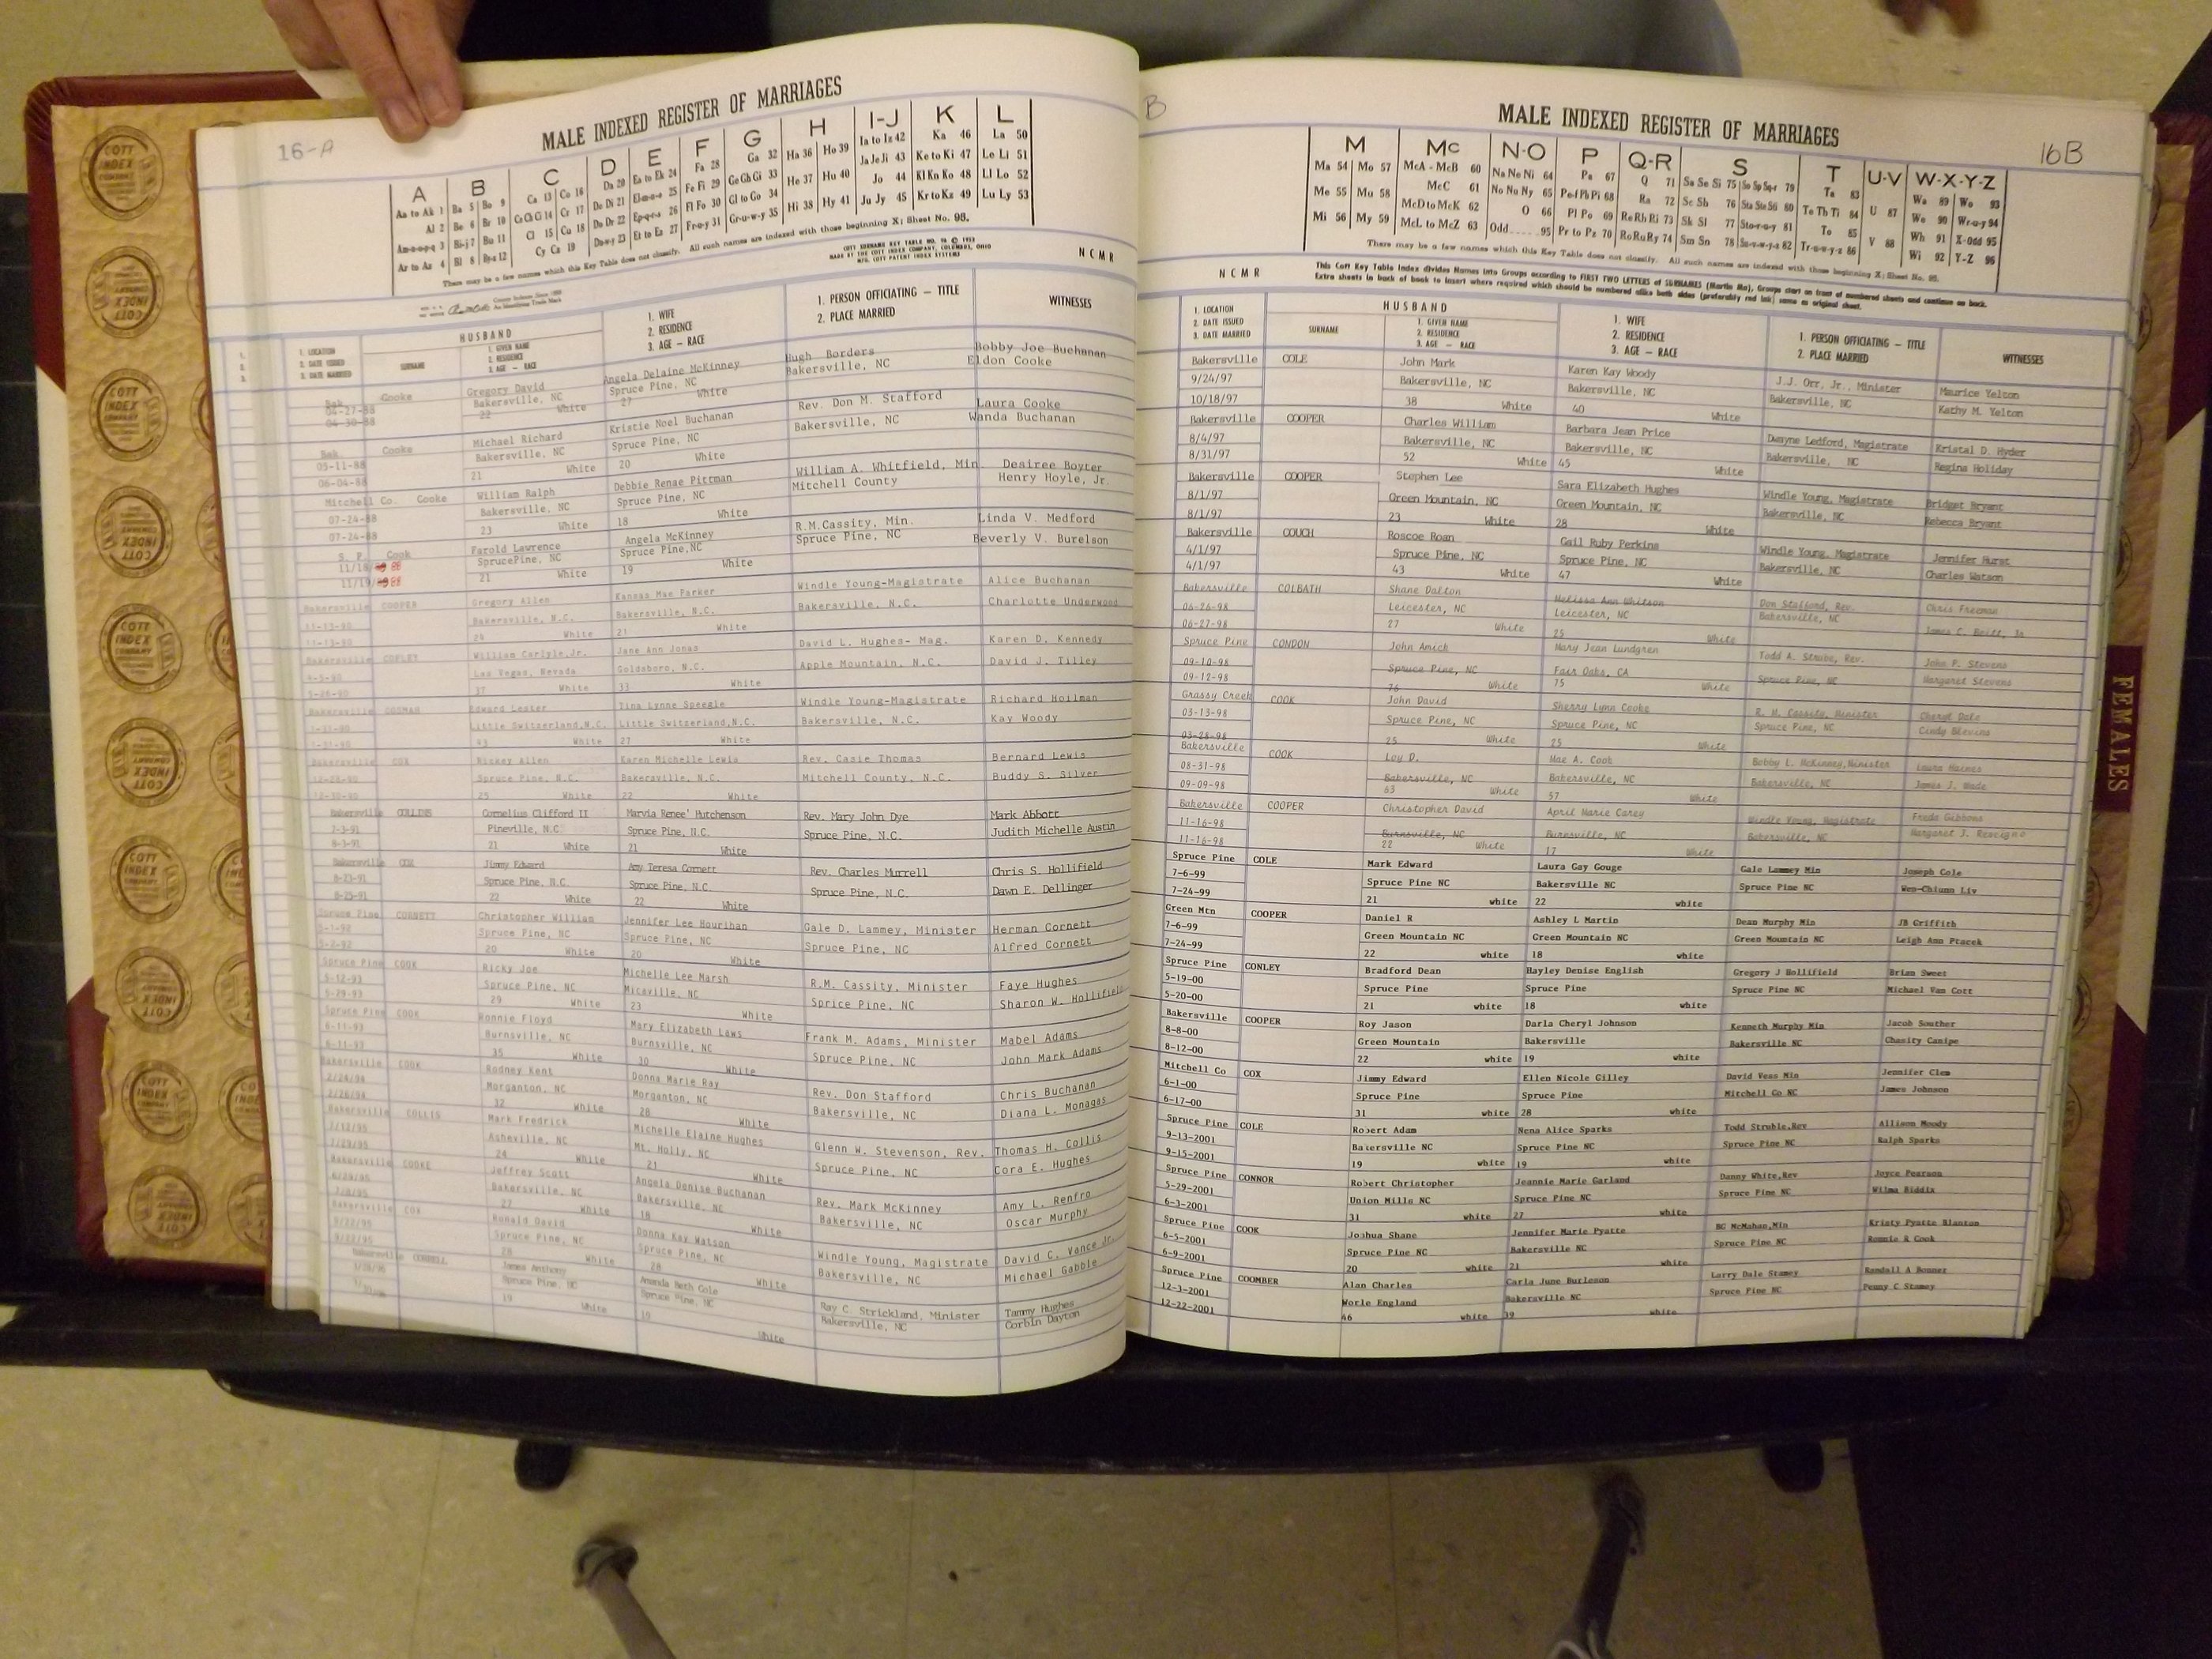 16-A
MALE INDEXED REGISTER OF MARRIAGES
A B C D E F G H I-J K L
Aa to Ak 1 Ba 5 Bo 9 Ca 13 Co 16 Da 20 Ea to Ek 24 Fa 28 Ga 32 Ha 36 Ho 39 Ia to Iz 42 Ka 46 La 50
Al 2 Be 6 Br 10 Ce Ch Ci 14 Cr 17 De Di 21 Fe Fi 29 Ge Gh Gi 33 He 37 Hu 40 Ja Je Ji 43 Ke to Ki 47 Le Li 51
Bi-j 7 Bu 11 Cl 15 Cu 18 Do Dr 22 Fl Fo 30 Gl to Go 34 Hi 38 Hy 41 Jo 44 Kl Kn Ko 48 Ll Lo 52
Ar to Az 4 Bl 8 By-z 12 Cy Cz 19 Et to Ez 27 Fr-u-y 31 Gr-u-w-y 35 Ju Jy 45 Kr to Kz 49 Lu Ly 53
There may be a few names which this Key Table does not classify. All such names are indexed with those beginning X; Sheet No. 98.
NCMR
HUSBAND
1. LOCATION
2. DATE ISSUED
3. DATE MARRIED
SURNAME
1. GIVEN NAME
2. RESIDENCE
3. AGE — RACE
1. WIFE
2. RESIDENCE
3. AGE — RACE
1. PERSON OFFICIATING — TITLE
2. PLACE MARRIED
WITNESSES
Bak. Cooke Gregory David Angela Delaine McKinney Hugh Borders Bobby Joe Buchanan
04-27-88 Bakersville, NC Spruce Pine, NC Bakersville, NC Eldon Cooke
04-30-88 22 White 27 White
Bak. Cooke Michael Richard Kristie Noel Buchanan Rev. Don M. Stafford Laura Cooke
05-11-88 Bakersville, NC Spruce Pine, NC Bakersville, NC Wanda Buchanan
06-04-88 21 White 20 White
Mitchell Co. Cooke William Ralph Debbie Renae Pittman William A. Whitfield, Min Desiree Boyter
07-24-88 Bakersville, NC Spruce Pine, NC Mitchell County Henry Hoyle, Jr.
07-24-88 23 White 18 White
S. P. Cook Farold Lawrence Angela McKinney R.M.Cassity, Min. Linda V. Medford
11/18/ 88 SprucePine, NC Spruce Pine,NC Spruce Pine, NC Beverly V. Burelson
11/19/ 88 21 White 19 White
Bakersville COOPER Gregory Allen Kansas Mae Parker Windle Young-Magistrate Alice Buchanan
11-13-90 Bakersville, N.C. Bakersville, N.C. Bakersville, N.C. Charlotte Underwood
11-13-90 24 White 21 White
Bakersville COPLEY William Carlyle,Jr. Jane Ann Jonas David L. Hughes- Mag. Karen D. Kennedy
4-5-90 Las Vegas, Nevada Goldsboro, N.C. Apple Mountain, N.C. David J. Tilley
5-26-90 37 White 33 White
Bakersville COSMAN Edward Lester Tina Lynne Speegle Windle Young-Magistrate Richard Hoilman
1-31-90 Little Switzerland,N.C. Little Switzerland,N.C. Bakersville, N.C. Kay Woody
1-31-90 43 White 27 White
Bakersville COX Rickey Allen Karen Michelle Lewis Rev. Casie Thomas Bernard Lewis
12-28-90 Spruce Pine, N.C. Bakersville, N.C. Mitchell County, N.C. Buddy S. Silver
12-30-90 25 White 22 White
Bakersville COLLINS Cornelius Clifford II Marvia Renee' Hutchenson Rev. Mary John Dye Mark Abbott
7-3-91 Pineville, N.C. Spruce Pine, N.C. Spruce Pine, N.C. Judith Michelle Austin
8-3-91 21 White 21 White
Bakersville COX Jimmy Edward Amy Teresa Cornett Rev. Charles Murrell Chris S. Hollifield
8-23-91 Spruce Pine, N.C. Spruce Pine, N.C. Spruce Pine, N.C. Dawn E. Dellinger
8-25-91 22 White 22 White
Spruce Pine CORNETT Christopher William Jennifer Lee Hourihan Gale D. Lammey, Minister Herman Cornett
5-1-92 Spruce Pine, NC Spruce Pine, NC Spruce Pine, NC Alfred Cornett
5-2-92 20 White 20 White
Spruce Pine COOK Ricky Joe Michelle Lee Marsh R.M. Cassity, Minister Faye Hughes
5-12-93 Spruce Pine, NC Micaville, NC Sprice Pine, NC Sharon W. Hollifield
5-29-93 29 White 23 White
Spruce Pine COOK Ronnie Floyd Mary Elizabeth Laws Frank M. Adams, Minister Mabel Adams
6-11-93 Burnsville, NC Burnsville, NC Spruce Pine, NC John Mark Adams
6-11-93 35 White 30 White
Bakersville COOK Rodney Kent Donna Marie Ray Rev. Don Stafford Chris Buchanan
2/24/94 Morganton, NC Morganton, NC Bakersville, NC Diana L. Monagas
2/26/94 32 White 28 White
Bakersville COLLIS Mark Fredrick Michelle Elaine Hughes Glenn W. Stevenson, Rev. Thomas H. Collis
7/12/95 Asheville, NC Mt. Holly, NC Spruce Pine, NC Cora E. Hughes
7/29/95 24 White 21 White
Bakersville COOKE Jeffrey Scott Angela Denise Buchanan Rev. Mark McKinney Amy L. Renfro
6/29/95 Bakersville, NC Bakersville, NC Bakersville, NC Oscar Murphy
7/8/95 27 White 18 White
Bakersville COX Ronald David Donna Kay Watson Windle Young, Magistrate David C. Vance Jr.
9/22/95 Spruce Pine, NC Spruce Pine, NC Bakersville, NC Michael Gabble
9/22/95 28 White 28 White
Bakersville CORNELL James Anthony Amanda Beth Cole Ray C. Strickland, Minister Tammy Hughes
Spruce Pine, NC Spruce Pine, NC Bakersville, NC Corbin Dayton
19 White 19 White
B
16B
MALE INDEXED REGISTER OF MARRIAGES
M Mc N-O P Q-R S T U-V W-X-Y-Z
Ma 54 Mo 57 McA - McB 60 Na Ne Ni 64 Pa 67 Q 71 Sa Se Si 75 So Sp Sq-r 79 Ta 83 Wa 89 Wo 93
Me 55 Mu 58 McC 61 No Nu Ny 65 Pe-f Ph Pi 68 Ra 72 Sc Sh 76 Sta Ste Sti 80 Te Th Ti 84 U 87 We 90 Wr-u-y 94
McD to McK 62 O 66 Pl Po 69 Re Rh Ri 73 Sk Sl 77 Sto-r-u-y 81 To 85 Wh 91 X-Odd 95
Mi 56 My 59 McL to McZ 63 Odd 95 Pr to Pz 70 Ro Ru Ry 74 Sm Sn 78 Su-v-w-y-z 82 Tr-u-w-y-z 86 V 88 Wi 92 Y-Z 96
There may be a few names which this Key Table does not classify. All such names are indexed with those beginning X; Sheet No. 98.
NCMR
This Cott Key Table Index divides Names into Groups according to FIRST TWO LETTERS of SURNAMES (Martin Ma), Groups start on front of numbered sheets and continue on back.
Extra sheets in back of book to insert where required which should be numbered alike both sides (preferably red ink) same as original sheet.
HUSBAND
1. LOCATION
2. DATE ISSUED
3. DATE MARRIED
SURNAME
1. GIVEN NAME
2. RESIDENCE
3. AGE — RACE
1. WIFE
2. RESIDENCE
3. AGE — RACE
1. PERSON OFFICIATING — TITLE
2. PLACE MARRIED
WITNESSES
Bakersville COLE John Mark Karen Kay Woody J.J. Orr, Jr., Minister Maurice Yelton
9/24/97 Bakersville, NC Bakersville, NC Bakersville, NC Kathy M. Yelton
10/18/97 38 White 40 White
Bakersville COOPER Charles William Barbara Jean Price Dwayne Ledford, Magistrate Kristal D. Hyder
8/4/97 Bakersville, NC Bakersville, NC Bakersville, NC Regina Holiday
8/31/97 52 White 45 White
Bakersville COOPER Stephen Lee Sara Elizabeth Hughes Windle Young, Magistrate Bridget Bryant
8/1/97 Green Mountain, NC Green Mountain, NC Bakersville, NC Rebecca Bryant
8/1/97 23 White 28 White
Bakersville COUCH Roscoe Roan Gail Ruby Perkins Windle Young, Magistrate Jennifer Hurst
4/1/97 Spruce Pine, NC Spruce Pine, NC Bakersville, NC Charles Watson
4/1/97 43 White 47 White
Bakersville COLBATH Shane Dalton Melissa Ann Whitson Don Stafford, Rev. Chris Freeman
06-26-98 Leicester, NC Leicester, NC Bakersville, NC James C. Britt, Jr
06-27-98 27 White 25 White
Spruce Pine CONDON John Amick Mary Jean Lundgren Todd A. Strube, Rev. John P. Stevens
09-10-98 Spruce Pine, NC Fair Oaks, CA Spruce Pine, NC Margaret Stevens
09-12-98 76 White 75 White
Grassy Creek COOK John David Sherry Lynn Cooke R. M. Cassity, Minister Cheryl Dale
03-13-98 Spruce Pine, NC Spruce Pine, NC Spruce Pine, NC Cindy Blevins
03-28-98 25 White 25 White
Bakersville COOK Loy D. Mae A. Cook Bobby L. McKinney,Minister Laura Haines
08-31-98 Bakersville, NC Bakersville, NC Bakersville, NC James J. Wade
09-09-98 63 White 57 White
Bakersville COOPER Christopher David April Marie Carey Windle Young, Magistrate Freda Gibbons
11-16-98 Burnsville, NC Burnsville, NC Bakersville, NC Margaret J. Rescigno
11-16-98 22 White 17 White
Spruce Pine COLE Mark Edward Laura Gay Gouge Gale Lammey Min Joseph Cole
7-6-99 Spruce Pine NC Bakersville NC Spruce Pine NC Wen-Chiunn Liv
7-24-99 21 white 22 white
Green Mtn COOPER Daniel R Ashley L Martin Dean Murphy Min JB Griffith
7-6-99 Green Mountain NC Green Mountain NC Green Mountain NC Leigh Ann Ptacek
7-24-99 22 white 18 white
Spruce Pine CONLEY Bradford Dean Hayley Denise English Gregory J Hollifield Brian Sweet
5-19-00 Spruce Pine Spruce Pine Spruce Pine NC Michael Van Cott
5-20-00 21 white 18 white
Bakersville COOPER Roy Jason Darla Cheryl Johnson Kenneth Murphy Min Jacob Souther
8-8-00 Green Mountain Bakersville Bakersville NC Chasity Canipe
8-12-00 22 white 19 white
Mitchell Co COX Jimmy Edward Ellen Nicole Gilley David Vess Min Jennifer Clem
6-1-00 Spruce Pine Spruce Pine Mitchell Co NC James Johnson
6-17-00 31 white 28 white
Spruce Pine COLE Robert Adam Nena Alice Sparks Todd Struble,Rev Allison Moody
9-13-2001 Bakersville NC Spruce Pine NC Spruce Pine NC Ralph Sparks
9-15-2001 19 white 19 white
Spruce Pine CONNOR Robert Christopher Jeannie Marie Garland Danny White,Rev Joyce Pearson
5-29-2001 Union Mills NC Spruce Pine NC Spruce Pine NC Wilma Biddix
6-3-2001 31 white 27 white
Spruce Pine COOK Joshua Shane Jennifer Marie Pyatte BG McMahan,Min Kristy Pyatte Blanton
6-5-2001 Spruce Pine NC Bakersville NC Spruce Pine NC Ronnie R Cook
6-9-2001 20 white 21 white
Spruce Pine COOMBER Alan Charles Carla June Burleson Larry Dale Stamey Randall A Bonner
12-3-2001 Worle England Bakersville NC Spruce Pine NC Penny C Stamey
12-22-2001 46 white 39 white
FEMALES
COTT INDEX COMPANY